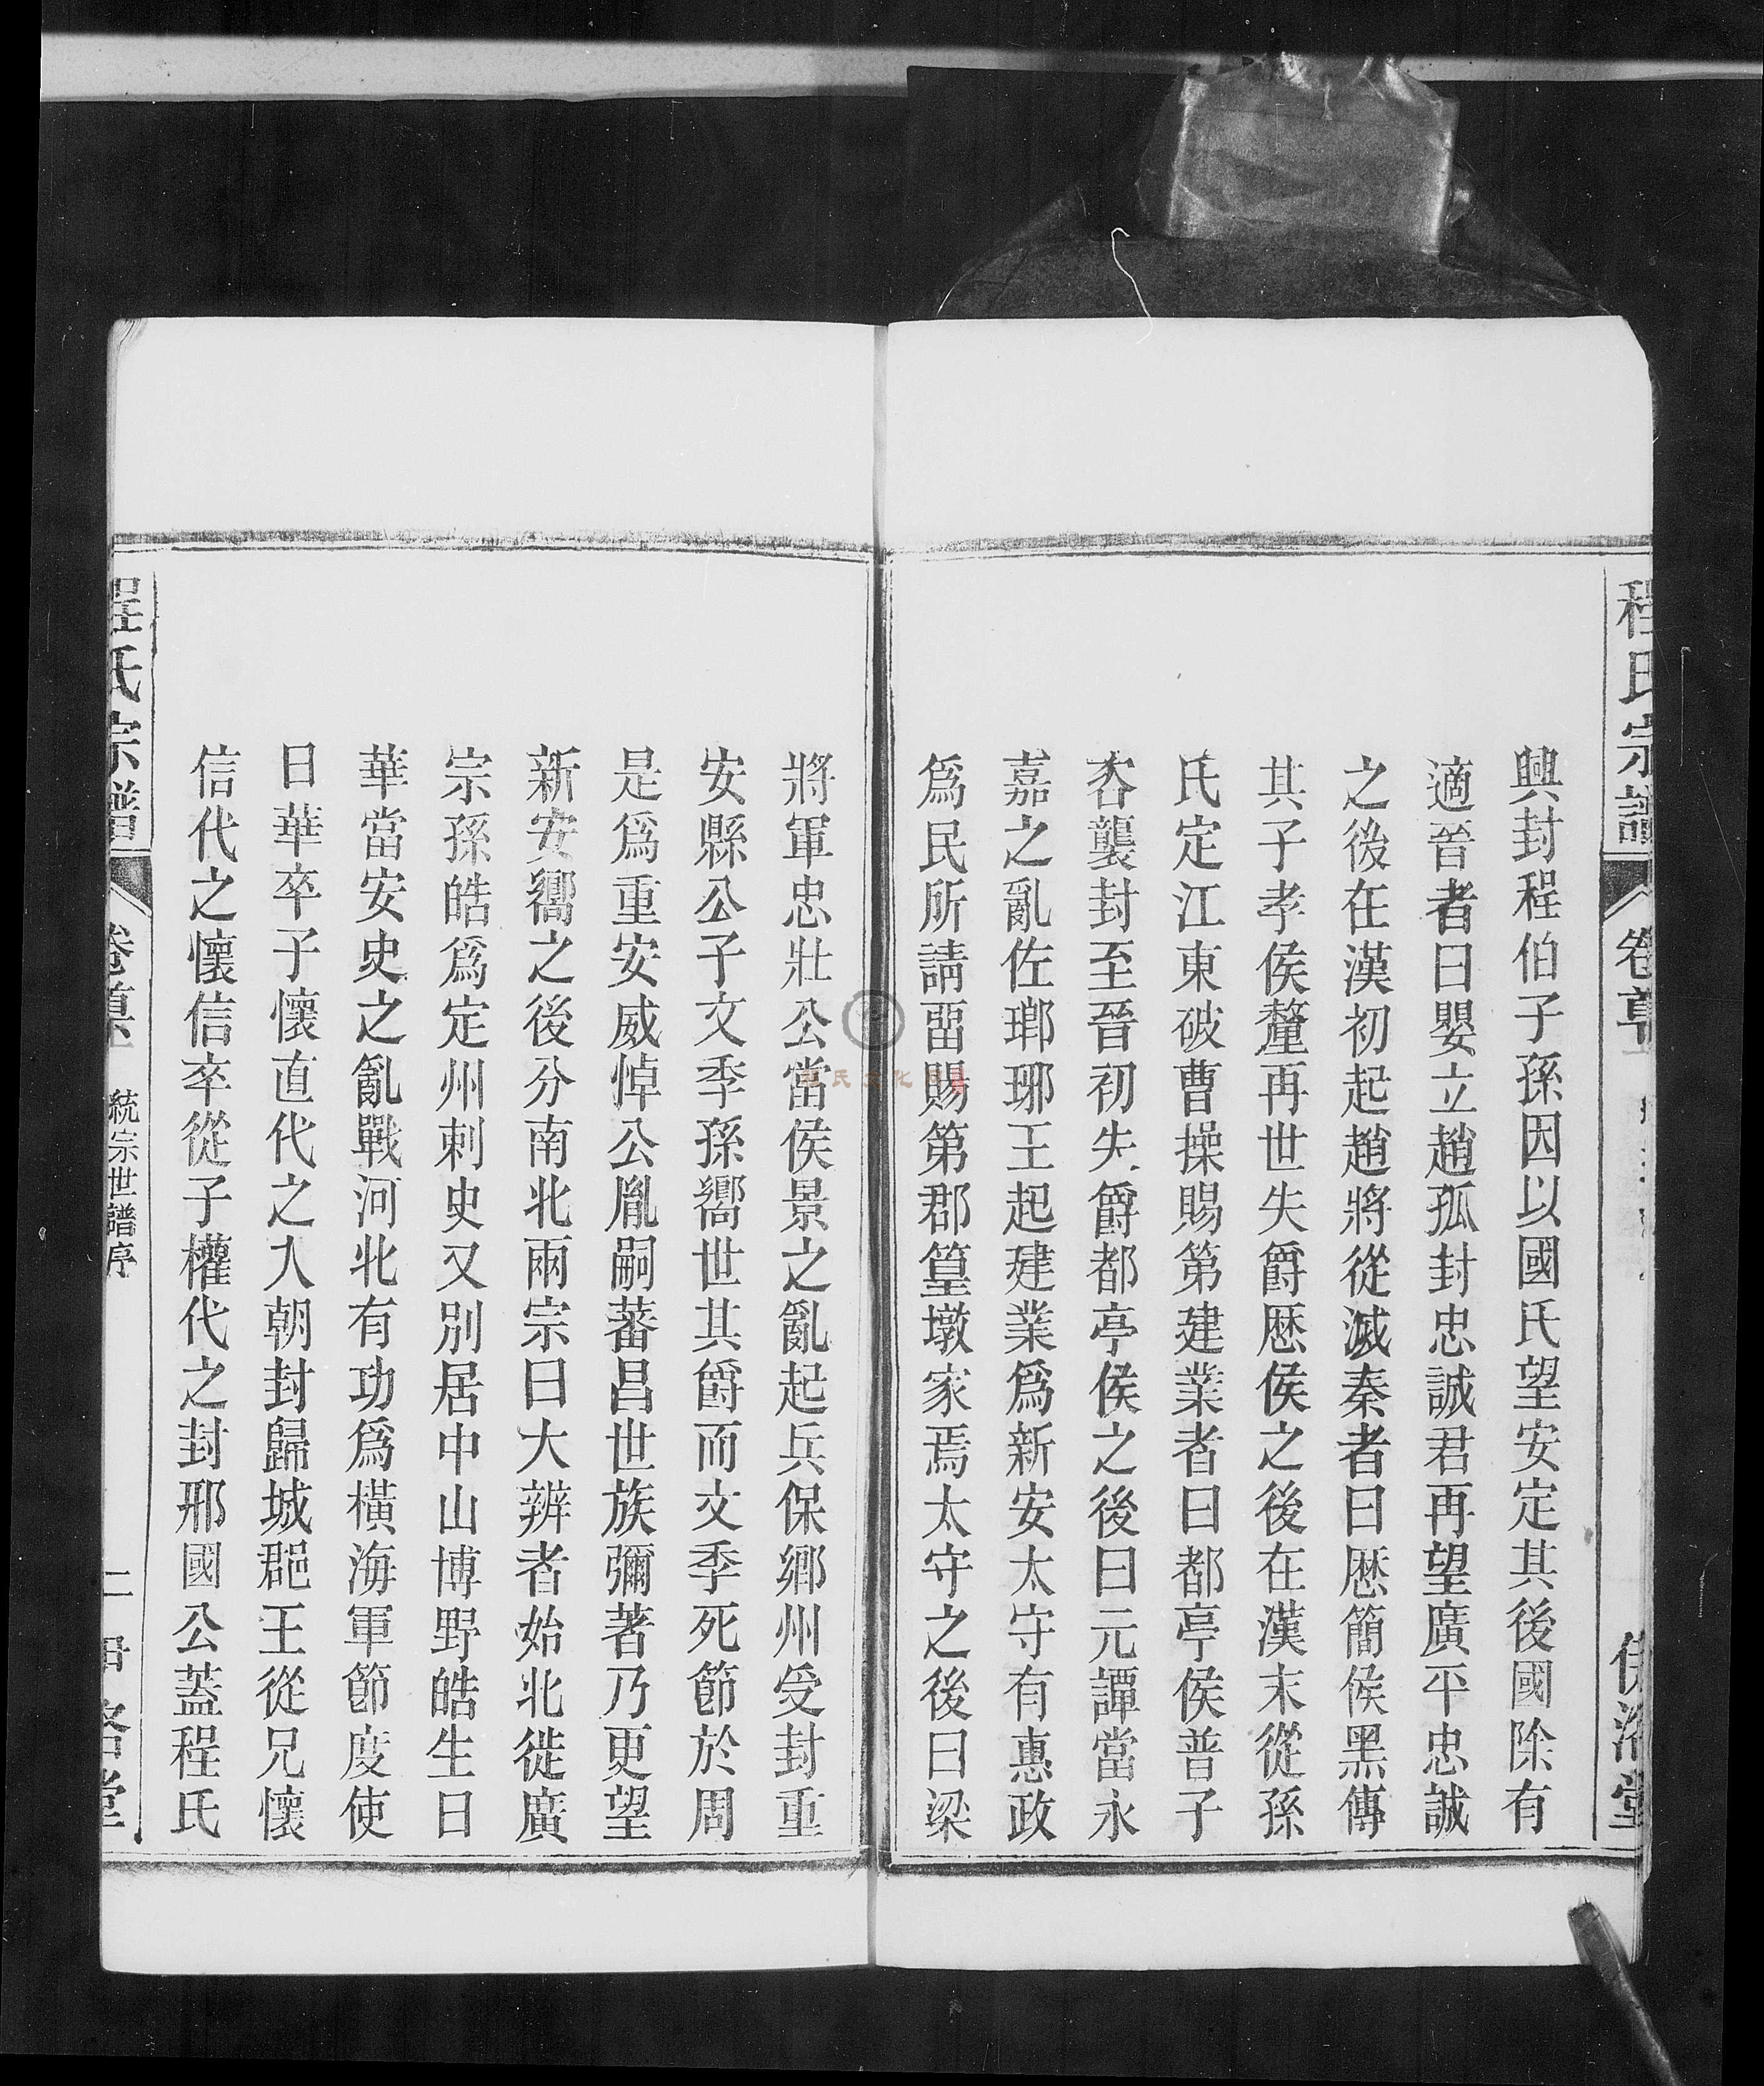 程氏宗譜
卷首
堂
興封程伯子孫因以國氏望安定其後國除有
適晉者曰嬰立趙孤封忠誠君再望廣平忠誠
之後在漢初起趙將從滅秦者曰厯簡侯黑傳
其子孝侯釐再世失爵厯侯之後在漢末從孫
氏定江東破曹操賜第建業者曰都亭侯普子
咨襲封至晉初失爵都亭侯之後曰元譚當永
嘉之亂佐瑯琊王起建業爲新安太守有惠政
爲民所請畱賜第郡篁墩家焉太守之後曰梁
將軍忠壯公當侯景之亂起兵保鄉州受封重
安縣公子文季孫嚮世其爵而文季死節於周
是爲重安威悼公胤嗣蕃昌世族彌著乃更望
新安嚮之後分南北兩宗曰大辨者始北徙廣
宗孫皓爲定州刺史又別居中山博野皓生日
華當安史之亂戰河北有功爲橫海軍節度使
日華卒子懷直代之入朝封歸城郡王從兄懷
信代之懷信卒從子權代之封邢國公蓋程氏
程氏宗譜
卷首
統宗世譜序
二
洛堂